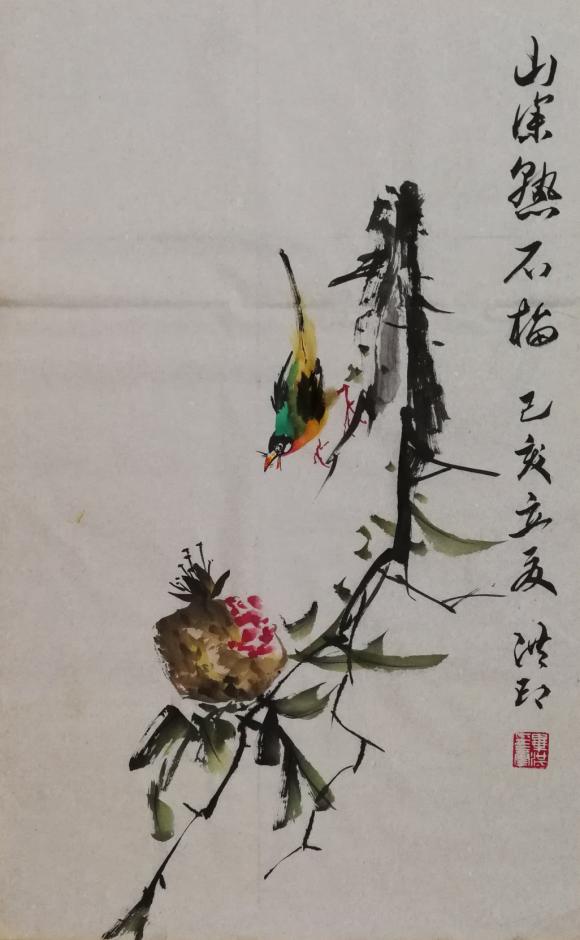 山深熟石榴 己亥立夏 洪印